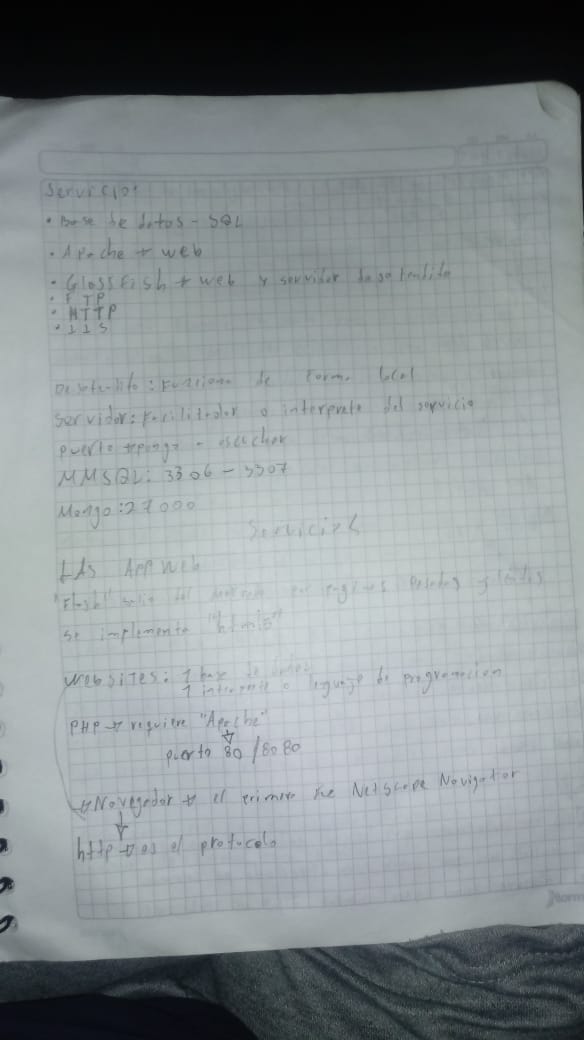 Servicios
• Base de datos - SQL
• Apache → web
• GlossFish → web y servidor desatendido
• FTP
• HTTP
• IIS
Desatendido: Funciona de forma local
Servidor: Facilitador o interprete del servicio
puerto - escuchar
MMSQL: 3306 - 3307
Mongo: 27000
Servicios
LAS APP Web
"Flash" salio del mercado por paginas pesadas y lentas
se implemento "html5"
websites: 1 base de datos
1 interprete o lenguaje de programacion
PHP → requiere "Apache"
puerto 80 / 8080
→ Navegador → el primero fue Netscape Navigator
http → es el protocolo